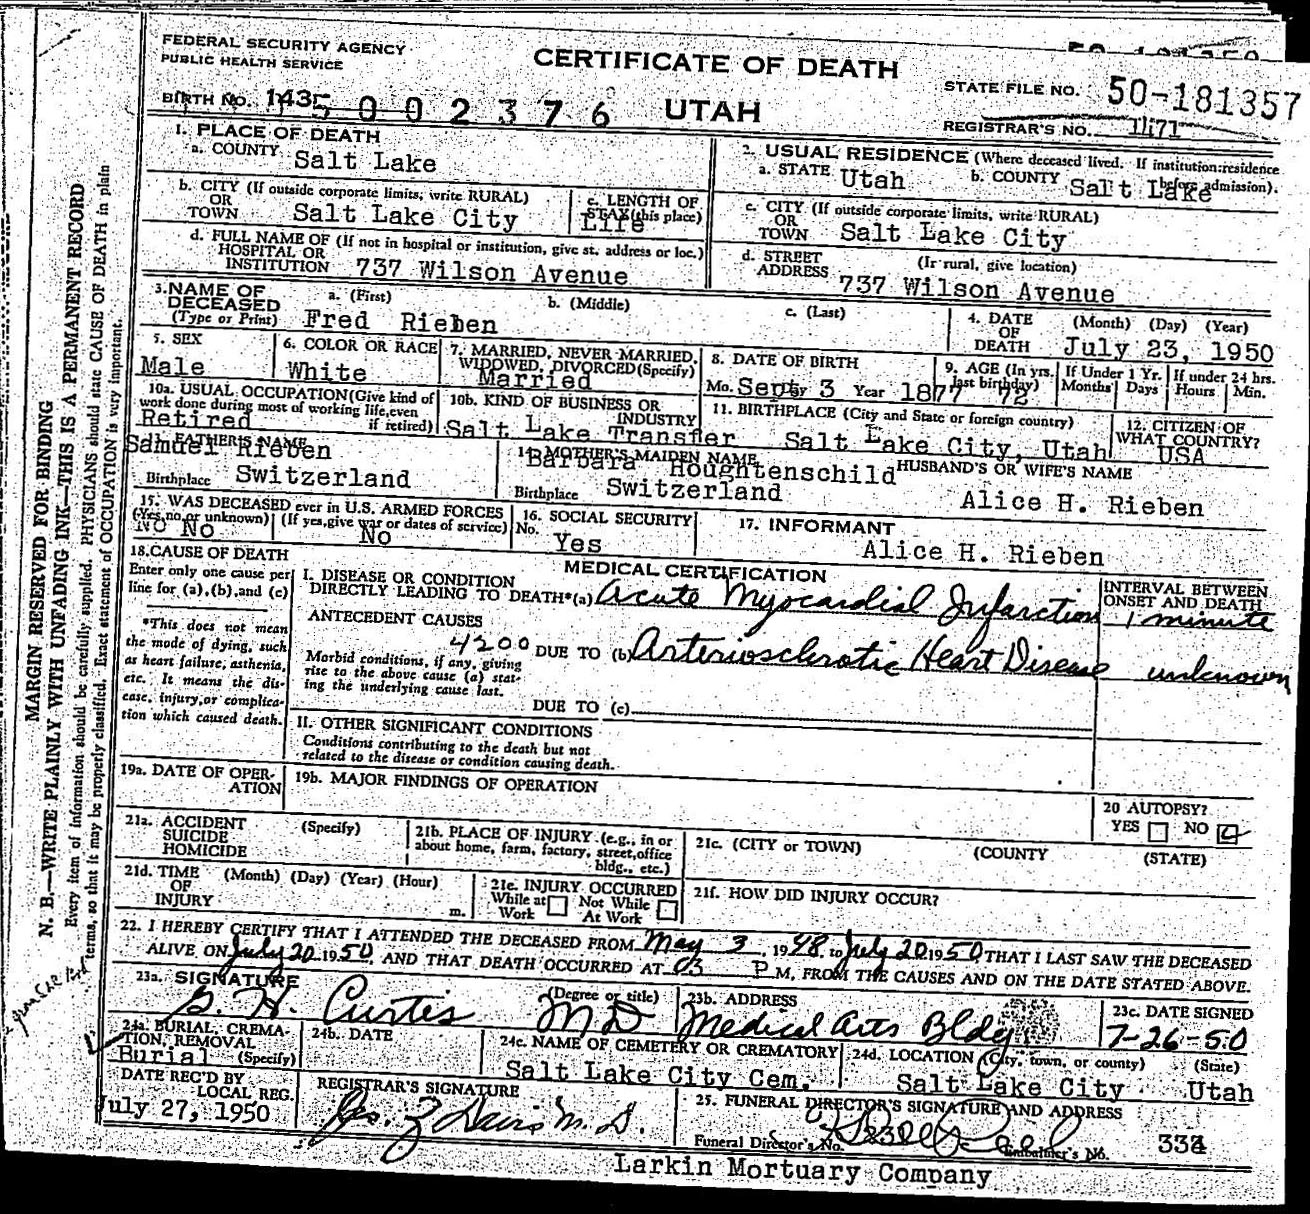 FEDERAL SECURITY AGENCY
PUBLIC HEALTH SERVICE
CERTIFICATE OF DEATH
UTAH
STATE FILE NO. 50-181357
BIRTH NO. 1435 0 0 2 3 7 6
REGISTRAR'S NO. 1471
MARGIN RESERVED FOR BINDING
N. B.—WRITE PLAINLY WITH UNFADING INK—THIS IS A PERMANENT RECORD
Every item of information should be carefully supplied. PHYSICIANS should state CAUSE OF DEATH in plain
terms, so that it may be properly classified. Exact statement of OCCUPATION is very important.
1. PLACE OF DEATH
a. COUNTY Salt Lake
b. CITY (If outside corporate limits, write RURAL)
OR
TOWN Salt Lake City
c. LENGTH OF
STAY (this place)
Life
d. FULL NAME OF (If not in hospital or institution, give st. address or loc.)
HOSPITAL OR
INSTITUTION 737 Wilson Avenue
2. USUAL RESIDENCE (Where deceased lived. If institution:residence
before admission).
a. STATE Utah b. COUNTY Salt Lake
c. CITY (If outside corporate limits, write RURAL)
OR
TOWN Salt Lake City
d. STREET (If rural, give location)
ADDRESS 737 Wilson Avenue
3. NAME OF
DECEASED
(Type or Print)
a. (First) b. (Middle) c. (Last)
Fred Rieben
4. DATE
OF
DEATH
(Month) (Day) (Year)
July 23, 1950
5. SEX
Male
6. COLOR OR RACE
White
7. MARRIED, NEVER MARRIED,
WIDOWED, DIVORCED (Specify)
Married
8. DATE OF BIRTH
Mo. Sept Day 3 Year 1877
9. AGE (In yrs.
last birthday)
72
If Under 1 Yr.
Months Days
If under 24 hrs.
Hours Min.
10a. USUAL OCCUPATION (Give kind of
work done during most of working life, even
if retired)
Retired
10b. KIND OF BUSINESS OR
INDUSTRY
Salt Lake Transfer
11. BIRTHPLACE (City and State or foreign country)
Salt Lake City, Utah
12. CITIZEN OF
WHAT COUNTRY?
USA
13. FATHER'S NAME
Samuel Rieben
Birthplace Switzerland
14. MOTHER'S MAIDEN NAME
Barbara Houghtenschild
Birthplace Switzerland
HUSBAND'S OR WIFE'S NAME
Alice H. Rieben
15. WAS DECEASED ever in U.S. ARMED FORCES
(Yes, no, or unknown) (If yes, give war or dates of service)
NO No No
16. SOCIAL SECURITY
No.
Yes
17. INFORMANT
Alice H. Rieben
18. CAUSE OF DEATH
Enter only one cause per
line for (a), (b), and (c)
*This does not mean
the mode of dying, such
as heart failure, asthenia,
etc. It means the dis-
ease, injury, or complica-
tion which caused death.
MEDICAL CERTIFICATION
I. DISEASE OR CONDITION
DIRECTLY LEADING TO DEATH*(a) Acute Myocardial Infarction
INTERVAL BETWEEN
ONSET AND DEATH
1 minute
ANTECEDENT CAUSES
4200 DUE TO (b) Arteriosclerotic Heart Disease unknown
Morbid conditions, if any, giving
rise to the above cause (a) stat-
ing the underlying cause last.
DUE TO (c)
II. OTHER SIGNIFICANT CONDITIONS
Conditions contributing to the death but not
related to the disease or condition causing death.
19a. DATE OF OPER-
ATION
19b. MAJOR FINDINGS OF OPERATION
20 AUTOPSY?
YES NO
21a. ACCIDENT
SUICIDE
HOMICIDE
(Specify)
21b. PLACE OF INJURY (e.g., in or
about home, farm, factory, street, office
bldg., etc.)
21c. (CITY or TOWN) (COUNTY) (STATE)
21d. TIME (Month) (Day) (Year) (Hour)
OF
INJURY m.
21e. INJURY OCCURRED
While at Not While
Work At Work
21f. HOW DID INJURY OCCUR?
22. I HEREBY CERTIFY THAT I ATTENDED THE DECEASED FROM May 3, 1948, to July 20 1950 THAT I LAST SAW THE DECEASED
ALIVE ON July 20 1950, AND THAT DEATH OCCURRED AT 03 P M, FROM THE CAUSES AND ON THE DATE STATED ABOVE.
23a. SIGNATURE (Degree or title)
G. H. Curtis MD
23b. ADDRESS
Medical Arts Bldg
23c. DATE SIGNED
7-26-50
24a. BURIAL, CREMA-
TION, REMOVAL
(Specify)
Burial
24b. DATE
24c. NAME OF CEMETERY OR CREMATORY
Salt Lake City Cem.
24d. LOCATION (City, town, or county) (State)
Salt Lake City Utah
DATE REC'D BY
LOCAL REG.
July 27, 1950
REGISTRAR'S SIGNATURE
25. FUNERAL DIRECTOR'S SIGNATURE AND ADDRESS
Funeral Director's No. Embalmer's No.
Larkin Mortuary Company